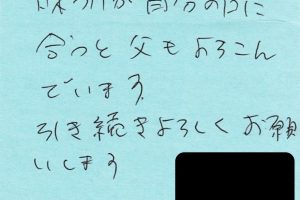 味付が自分の口に
合うと父もよろこん
でいます。
引き続きよろしくお願
いします